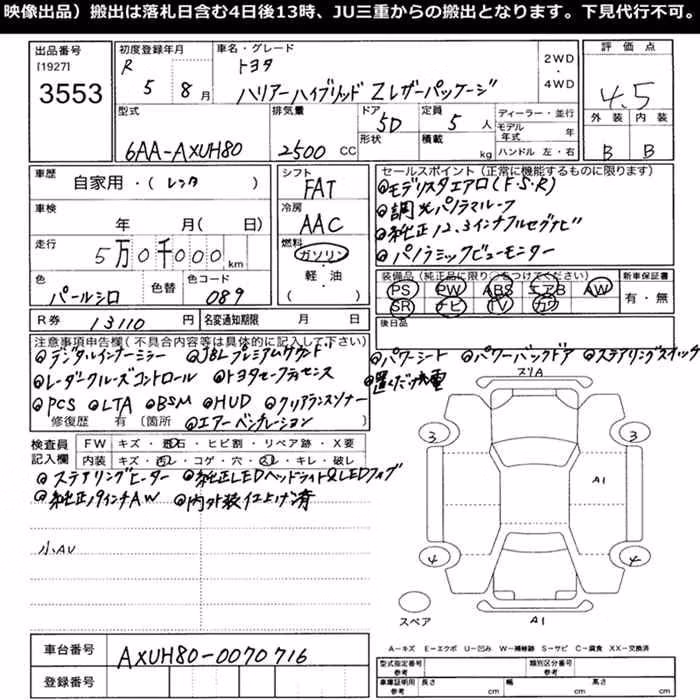 映像出品）搬出は落札日含む4日後13時、JU三重からの搬出となります。下見代行不可。
出品番号
[1927]
3553
初度登録年月
R 5 8月
車名・グレード
トヨタ
ハリアーハイブリッド Zレザーパッケージ
2WD
・
4WD
評価点
4.5
外装 内装
B B
型式
6AA-AXUH80
排気量
2500 CC
ドア
5D
形状
定員
5人
積載
kg
ディーラー・並行
モデル年式 年
ハンドル 左・右
車歴
自家用・(レンタ )
車検
年 月( 日)
走行
5万0千000km
色
パールシロ
色替
色コード
089
シフト
FAT
冷房
AAC
燃料
ガソリン
・
軽・油
( )
R券 13110円
名変通知期限 月 日
セールスポイント（正常に機能するものに限ります）
◎モデリスタエアロ(F・S・R)
◎調光パノラマルーフ
◎純正12.3インチフルセグナビ
◎パノラミックビューモニター
装備品（純正品に限り○をつけてください）
PS PW ABS エアB AW
SR ナビ TV カワ
新車保証書
有・無
後日品
注意事項申告欄(不具合内容等は具体的に記入して下さい)
◎デジタルインナーミラー ◎JBLプレミアムサウンド
◎パワーシート ◎パワーバックドア ◎ステアリングスイッチ
◎レーダークルーズコントロール ◎トヨタセーフティセンス
◎置くだけ充電
◎PCS ◎LTA ◎BSM ◎HUD ◎クリアランスソナー
修復歴 有(箇所 ◎エアーベンチレーション)
検査員記入欄
FW キズ・飛石・ヒビ割・リペア跡・X要
内装 キズ・汚レ・コゲ・穴・スレ・キレ・破レ
◎ステアリングヒーター ◎純正LEDヘッドライト&LEDフォグ
◎純正19インチAW ◎内外装仕上げ済
小AU
スリA
3 3
A1
4 4
スペア
A1
A―キズ E―エクボ U―凹み W―補修跡 S―サビ C―腐食 XX―交換済
車台番号
AXUH80-0070716
登録番号
型式指定番号
参考
類別区分番号
参考
車庫証明用
参考
長さ cm
幅 cm
高さ cm